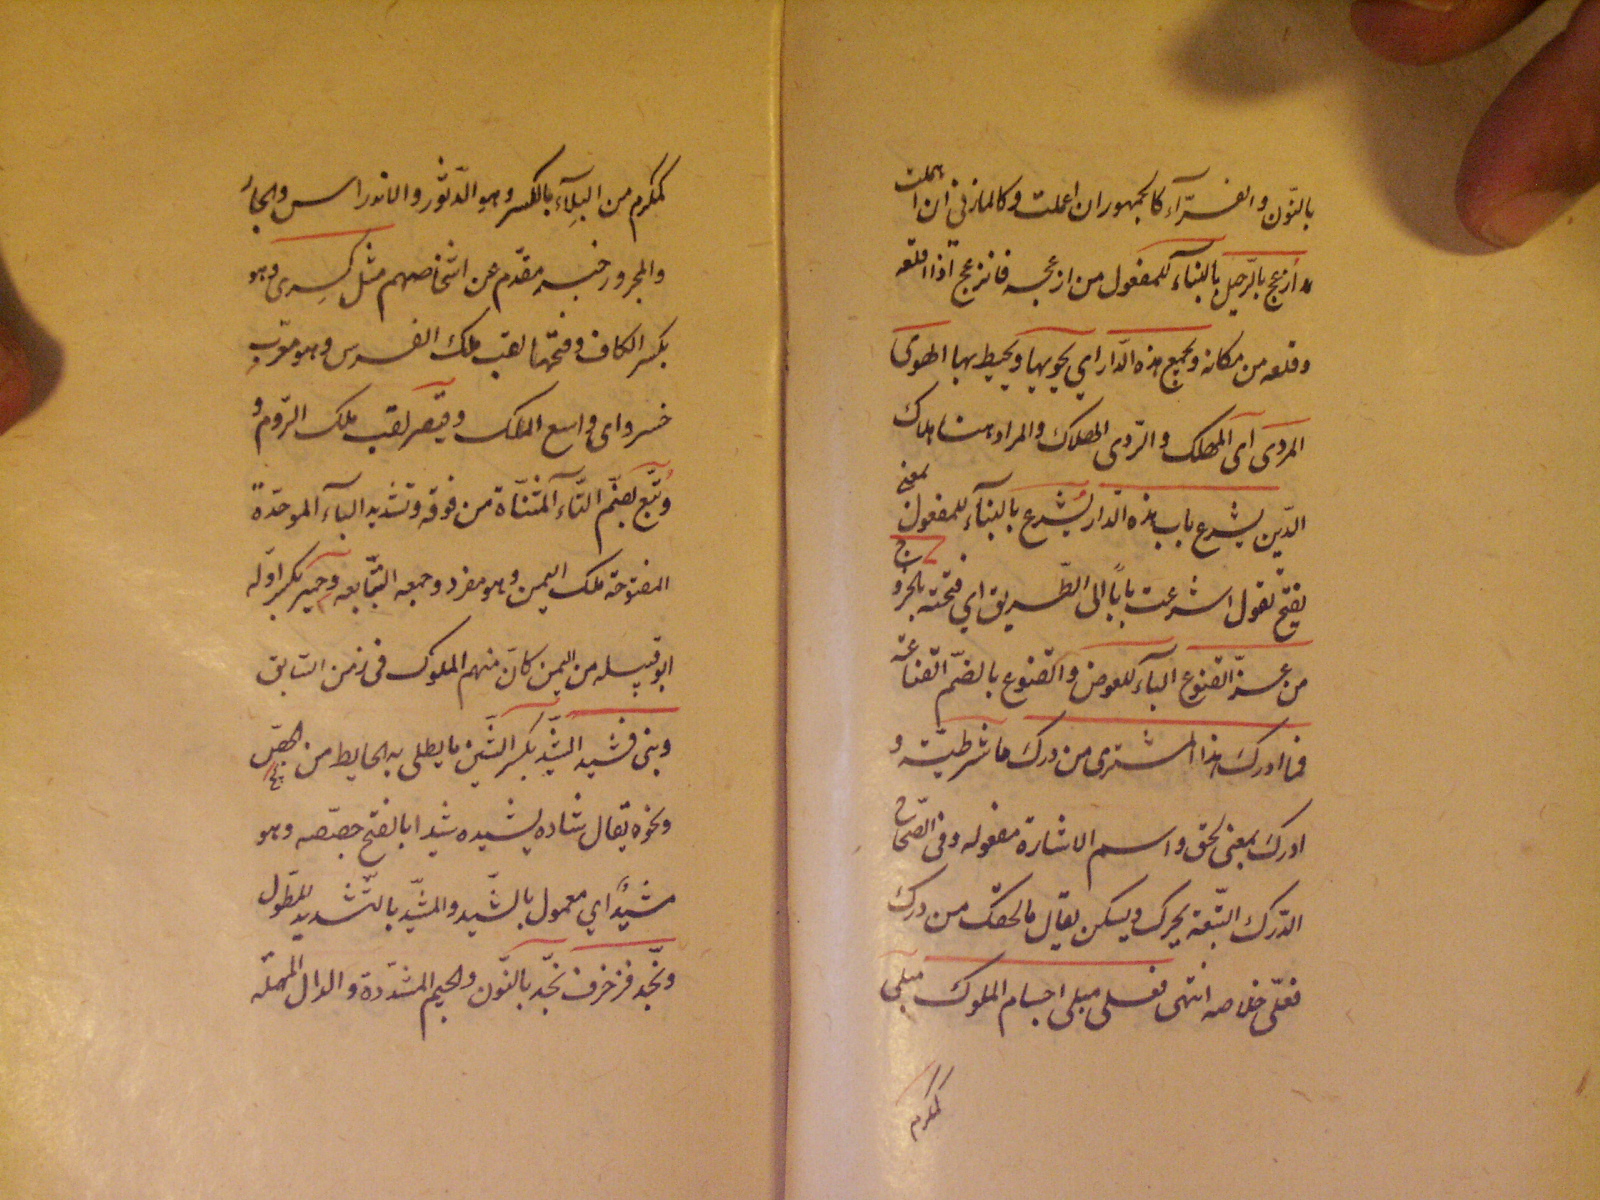 بالنّون والفرّاء كالجمهور ان اعملت وكالمازنى ان اهملت
وازعج بالرّحيل بالبناء للمفعول من ازعجه فانزعج اذا اقلعه
وقلعه من مكانه ويجمع هذه الدّار اي يحويها ويحيط بها الهوى
المردى اى المهلك والرّدى الهلاك والمراد هنا هلاك
الدّين يشرع باب هذه الدّار يُشرع بالبناء للمفعول بمعنى
يفتح تقول اشرعت بابًا الى الطّريق اي فتحته بالخروج
من عزّ القنوع الباء للعوض والقنوع بالضمّ القناعة
فما ادرك هذا المشترى من درك ما شرطيّة و
ادرك بمعنى لحق واسم الاشارة مفعوله وفى الصّحاح
الدّرك التّبعة يحرك ويسكن يقال ما لحقك من درك
فعلىّ خلاصه انتهى فعلى مبلى اجسام الملوك مبلى
كمكرم
كمكرم من البِلاء بالكسر وهو الدّثور والاندراس والجار
والمجرور خبر مقدّم عن اشخاصهم مثل كِسرى وهو
بكسر الكاف وفتحها لقب ملك الفرس وهو معرّب
خسرو اى واسع الملك وقيصر لقب ملك الرّوم و
وتُبّع بضمّ التّاء المثنّاة من فوقه وتشديد الباء الموحّدة
المفتوحة ملك اليمن وهو مفرد وجمعه التّبابعه وحمير بكسر اوّله
ابو قبيله من اليمن كان منهم الملوك فى زمن السّابق
وبنى فشيد الشّيد بكسر الشّين ما يطلى به الحايط من الجصّ
ونحوه يقال شاده يشيده شيدا بالفتح جصّصه وهو
مشيدٌ اي معمول بالشّيد والمشيّد بالتّشديد للمطوّل
ونجّد فزخرف نجّد بالنّون والجيم المشدّدة والدال المهملة